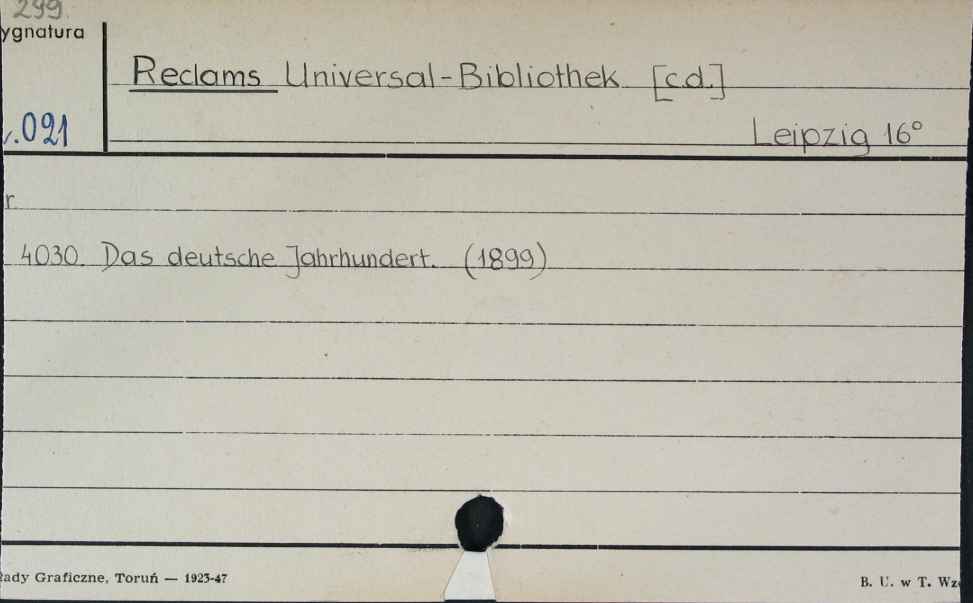 299
ygnatura
Reclams Universal-Bibliothek [c.d.]
.021
Leipzig 16°
r.
4030. Das deutsche Jahrhundert. (1899)
ady Graficzne, Toruń — 1923-47
B. U. w T. Wz